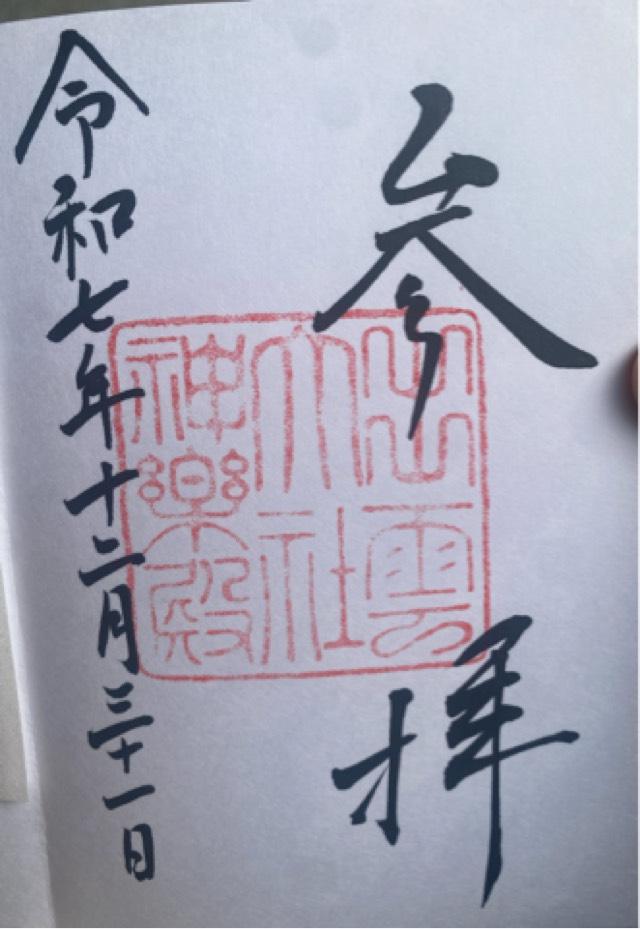 参拝
出雲
大社
神楽殿
令和七年十二月三十一日